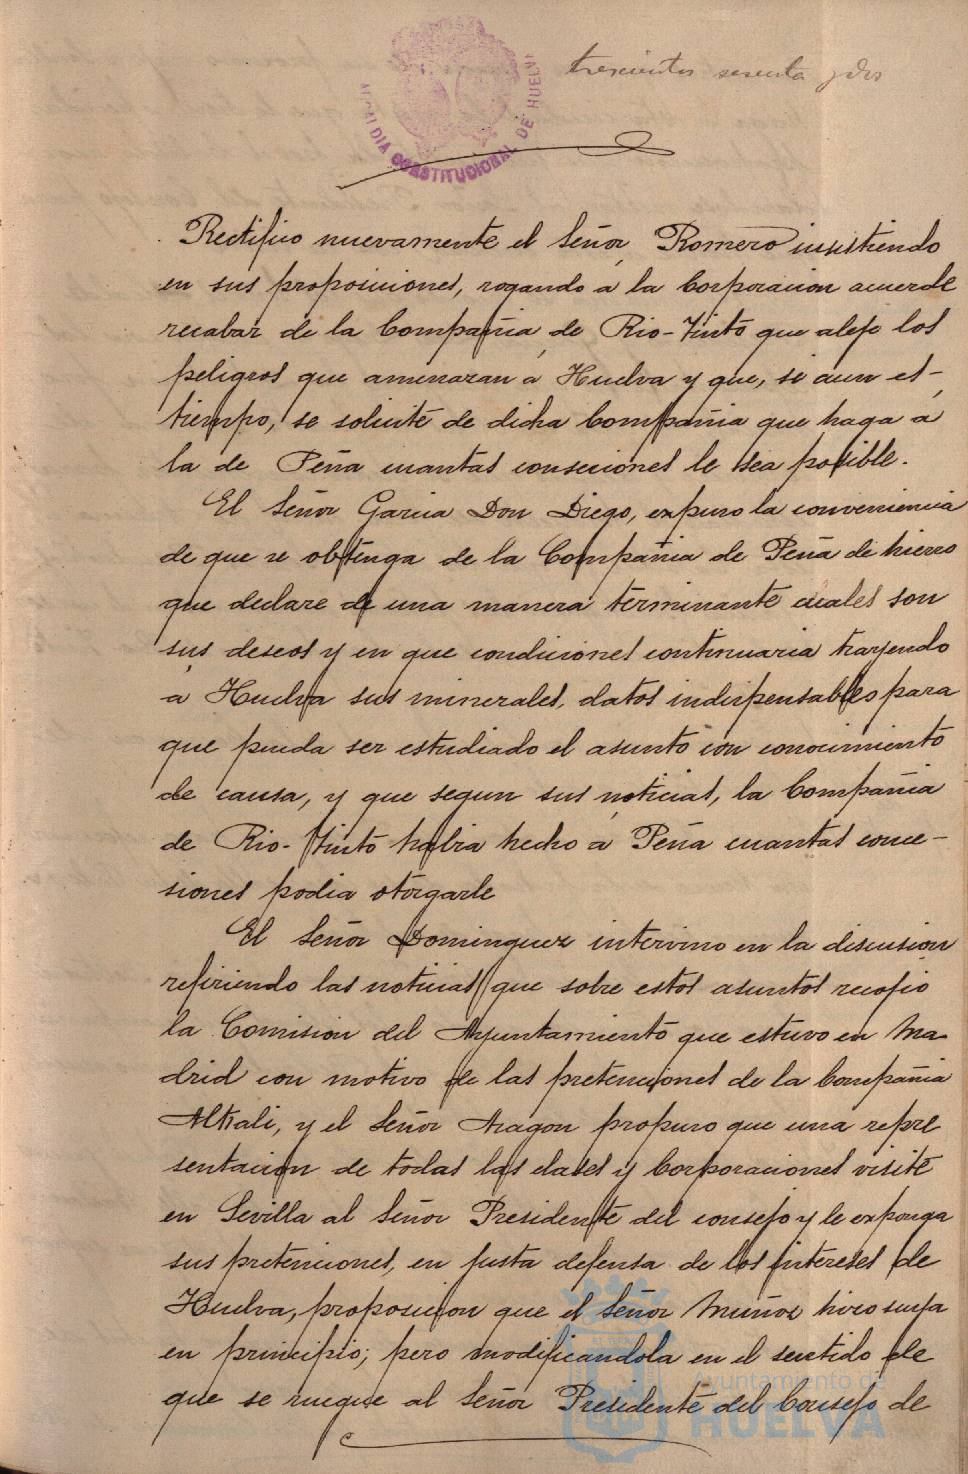 trescientos sesenta y dos
ALCALDIA CONSTITUCIONAL DE HUELVA
Rectifico nuevamente el Señor Romero insistiendo
en sus proposiciones, rogando á la Corporacion acuerde
recabar de la Compañia de Rio-Tinto que aleje los
peligros que amenazan á Huelva y que, si aun es
tiempo, se solicite de dicha Compañia que haga á
la de Peña cuantas consecciones le sea posible.
El Señor Garcia Don Diego, expuso la conveniencia
de que se obtenga de la Compañia de Peña de hierro
que declare de una manera terminante cuales son
sus deseos y en que condiciones continuaria trayendo
á Huelva sus minerales, datos indispensables para
que pueda ser estudiado el asunto con conocimiento
de causa, y que segun sus noticias, la Compañia
de Rio-Tinto habia hecho á Peña cuantas conce-
siones podia otorgarle
El Señor Dominguez intervino en la discusion
refiriendo las noticias que sobre estos asuntos recojio
la Comision del Ayuntamiento que estuvo en Ma
drid con motivo de las pretenciones de la Compañia
Alkali, y el Señor Aragon propuso que una repre
sentacion de todas las clases y Corporaciones visite
en Sevilla al Señor Presidente del consejo y le exponga
sus pretenciones, en justa defensa de los intereses de
Huelva, proposicion que el Señor Muñoz hizo suya
en principio; pero modificandola en el sentido de
que se ruegue al Señor Presidente del Consejo de
Ayuntamiento de
HUELVA